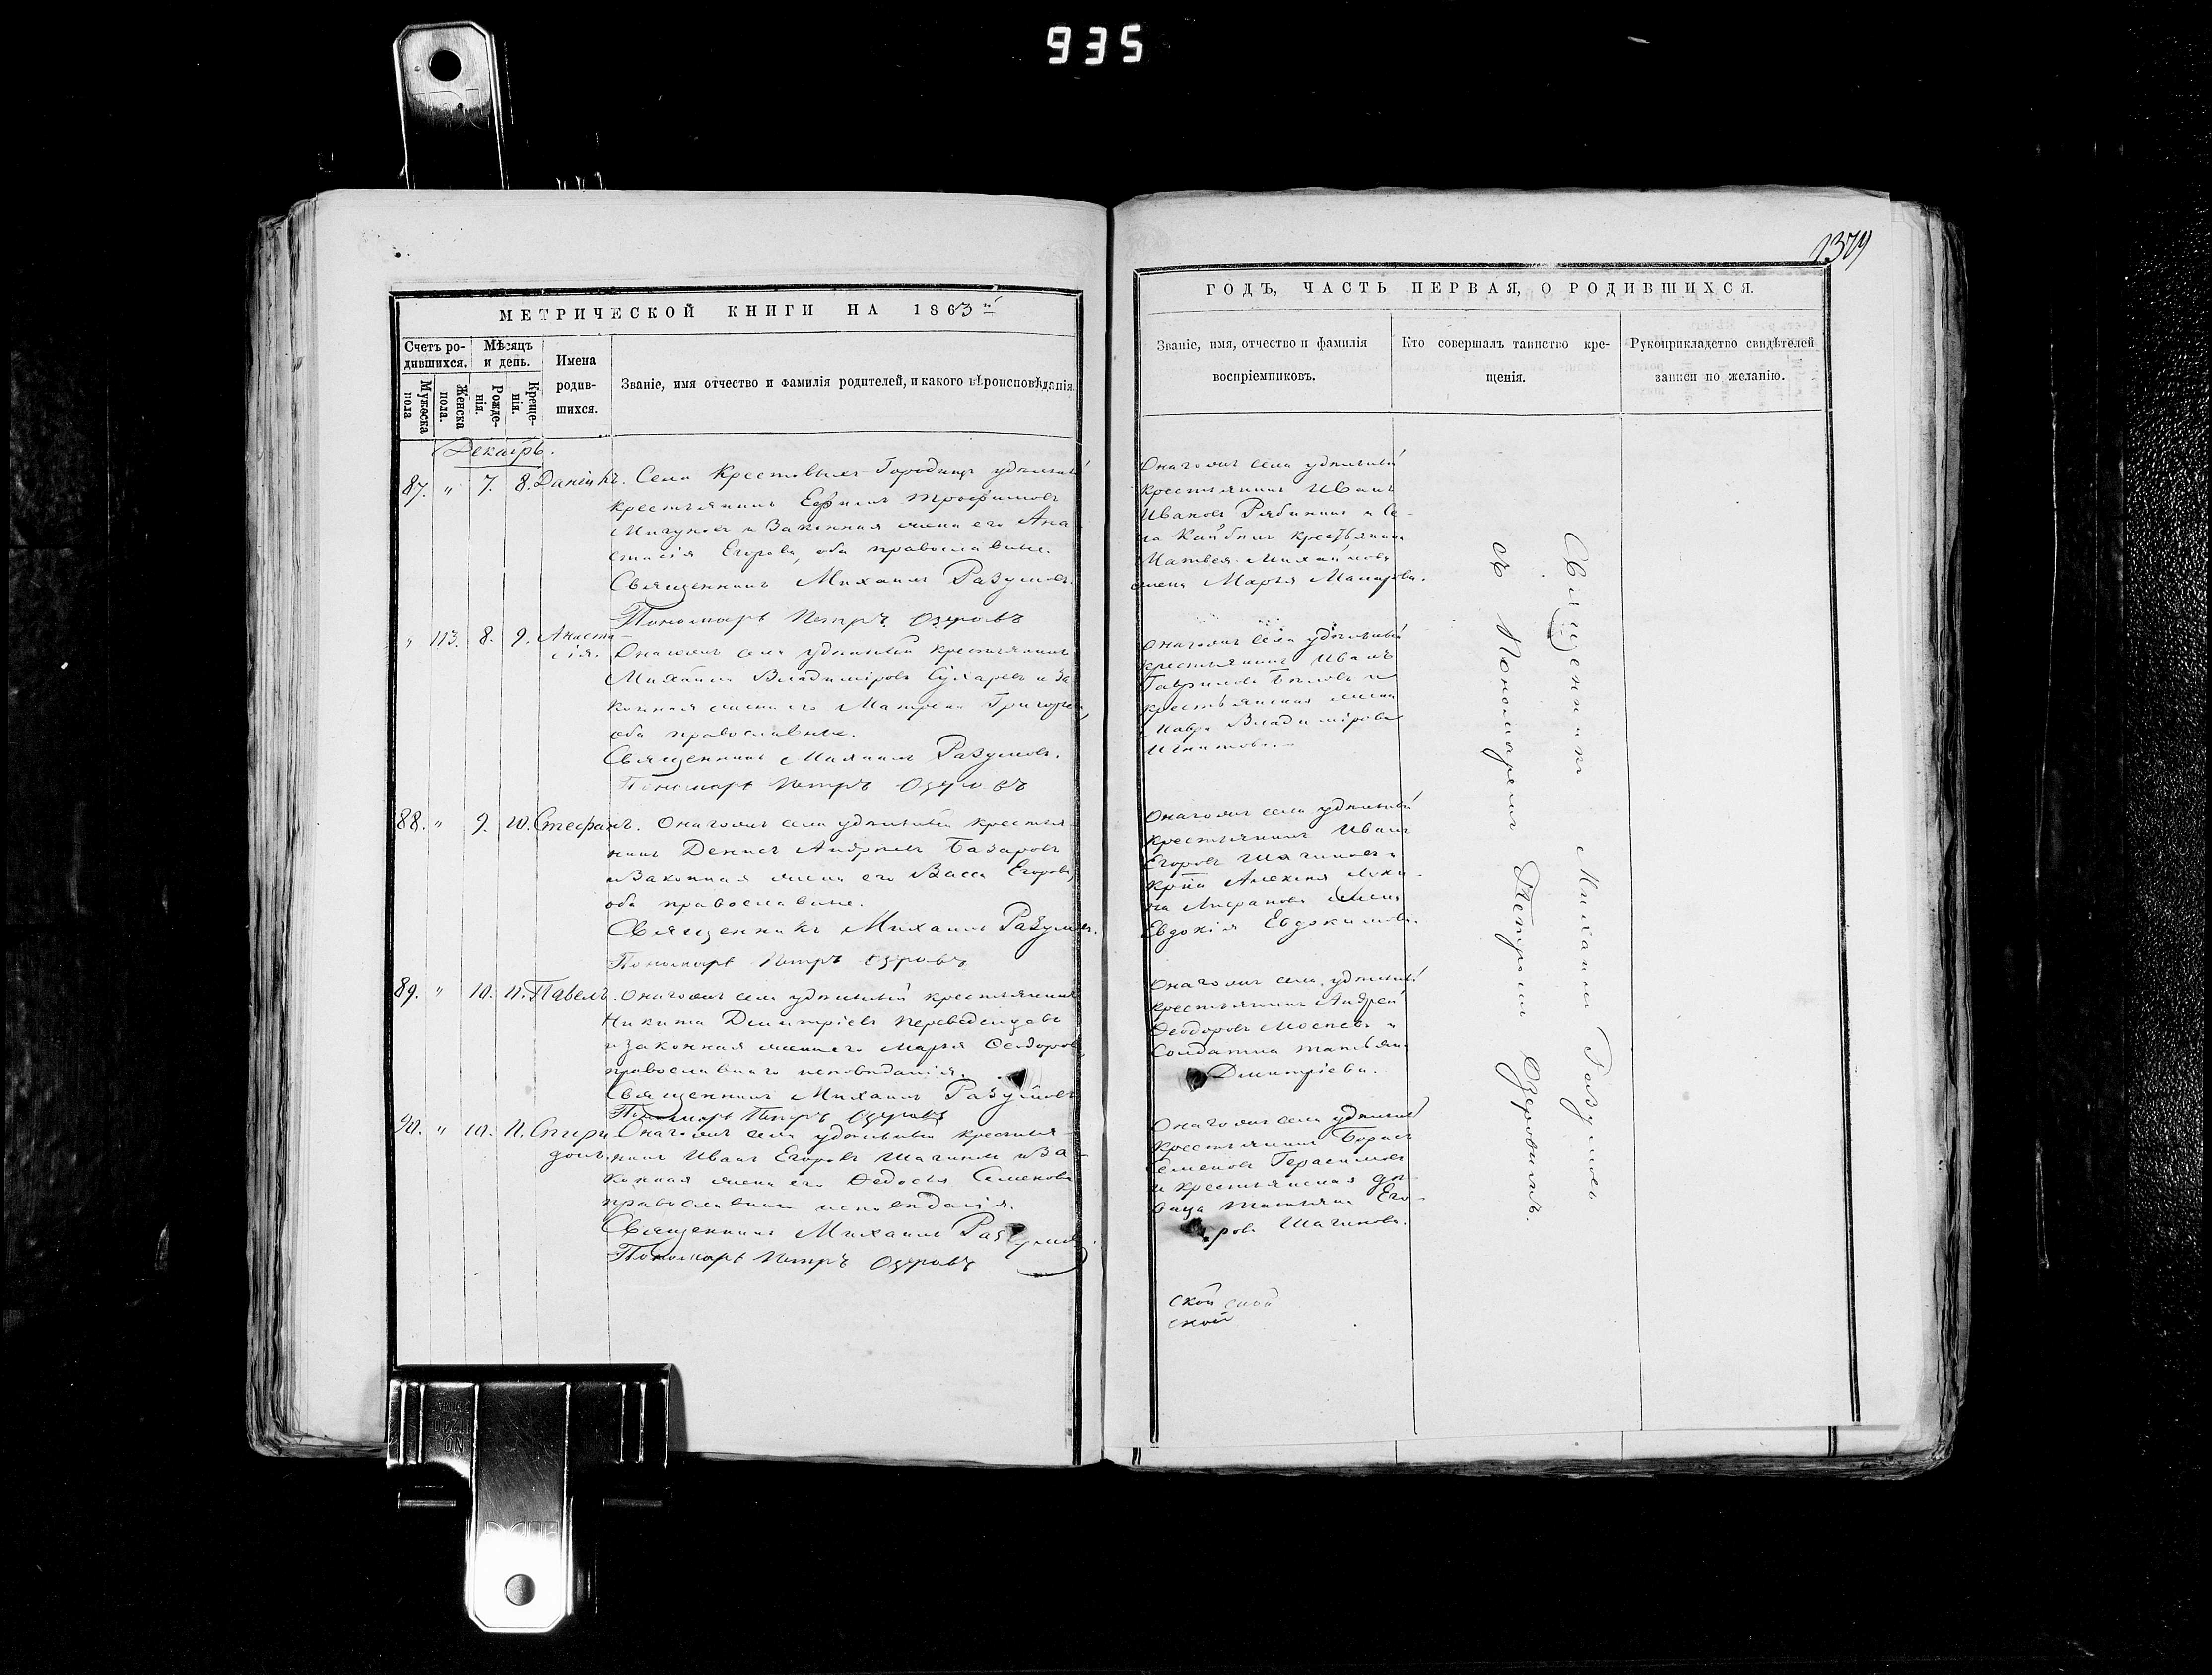 935
1379
МЕТРИЧЕСКОЙ КНИГИ НА 1863й
Счетъ ро-
дившихся.
Мѣсяцъ
и день.
Мужеска
пола
Женска
пола.
Рожде-
нія.
Креще-
нія.
Имена
родив-
шихся.
Званіе, имя отчество и фамилія родителей, и какого вѣроисповѣданія.
Декабрь.
87. " 7. 8. Даніилъ. Села Крестовыхъ-Городищъ удѣльный
крестьянинъ Ефимъ Трофимовъ
и Законная жена его Ана-
стасія Егорова, оба православные.
Священникъ Михаилъ Разумовъ.
Пономарь Петръ Озеровъ
" 113. 8. 9. Анаста-
сія. Онагожъ села удѣльный крестьянинъ
Михаилъ Владиміровъ Сухаревъ и За-
конная жена его Матрена Григорьева,
оба православные.
Священникъ Михаилъ Разумовъ.
Пономарь Петръ Озеровъ
88. " 9. 10. Стефанъ. Онагожъ села удѣльный крестья-
нинъ Денисъ Андреевъ Базаровъ
и Законная жена его Васса Егорова,
оба православные.
Священникъ Михаилъ Разумовъ.
Пономарь Петръ Озеровъ
89. " 10. 11. Павелъ. Онагожъ села удѣльный крестьянинъ
Никита Димитріевъ Переведенцевъ
и законная жена его Марья Ѳеодорова,
православнаго исповѣданія.
Священникъ Михаилъ Разумовъ
Пономарь Петръ Озеровъ
90. " 10. 11. Спири-
донъ. Онагожъ села удѣльный крестья-
нинъ Иванъ Егоровъ Шагинъ и За-
конная жена его Ѳедосья Семенова
православнаго исповѣданія.
Священникъ Михаилъ Разумовъ.
Пономарь Петръ Озеровъ
ГОДЪ, ЧАСТЬ ПЕРВАЯ, О РОДИВШИХСЯ.
Званіе, имя, отчество и фамилія
воспріемниковъ.
Кто совершалъ таинство кре-
щенія.
Рукоприкладство свидѣтелей
записи по желанію.
Онагожъ села удѣльный
крестьянинъ Иванъ
Ивановъ Рябининъ и Се-
ла Кайбелъ крестьянина
Матвея Михайлова
жена Марья Макарова.
Онагожъ села удѣльный
крестьянинъ Иванъ
Гавриловъ Бѣловъ и
крестьянская жена
Мавра Владимірова
Игнатова.
Онагожъ села удѣльный
крестьянинъ Иванъ
Егоровъ Шагиновъ и
Евдокія Евдокимова.
Онагожъ села, удѣльный
крестьянинъ Андрей
Ѳеодоровъ и
Солдатка Татьяна
Димитріева.
Онагожъ села удѣльный
крестьянинъ Борисъ
Семеновъ Герасимовъ
и крестьянская дѣ-
вица Татьяна Его-
рова Шагинова.
ской ской
ской
Священникъ Михаилъ Разумовъ
съ Пономаремъ Петромъ Озеровымъ.